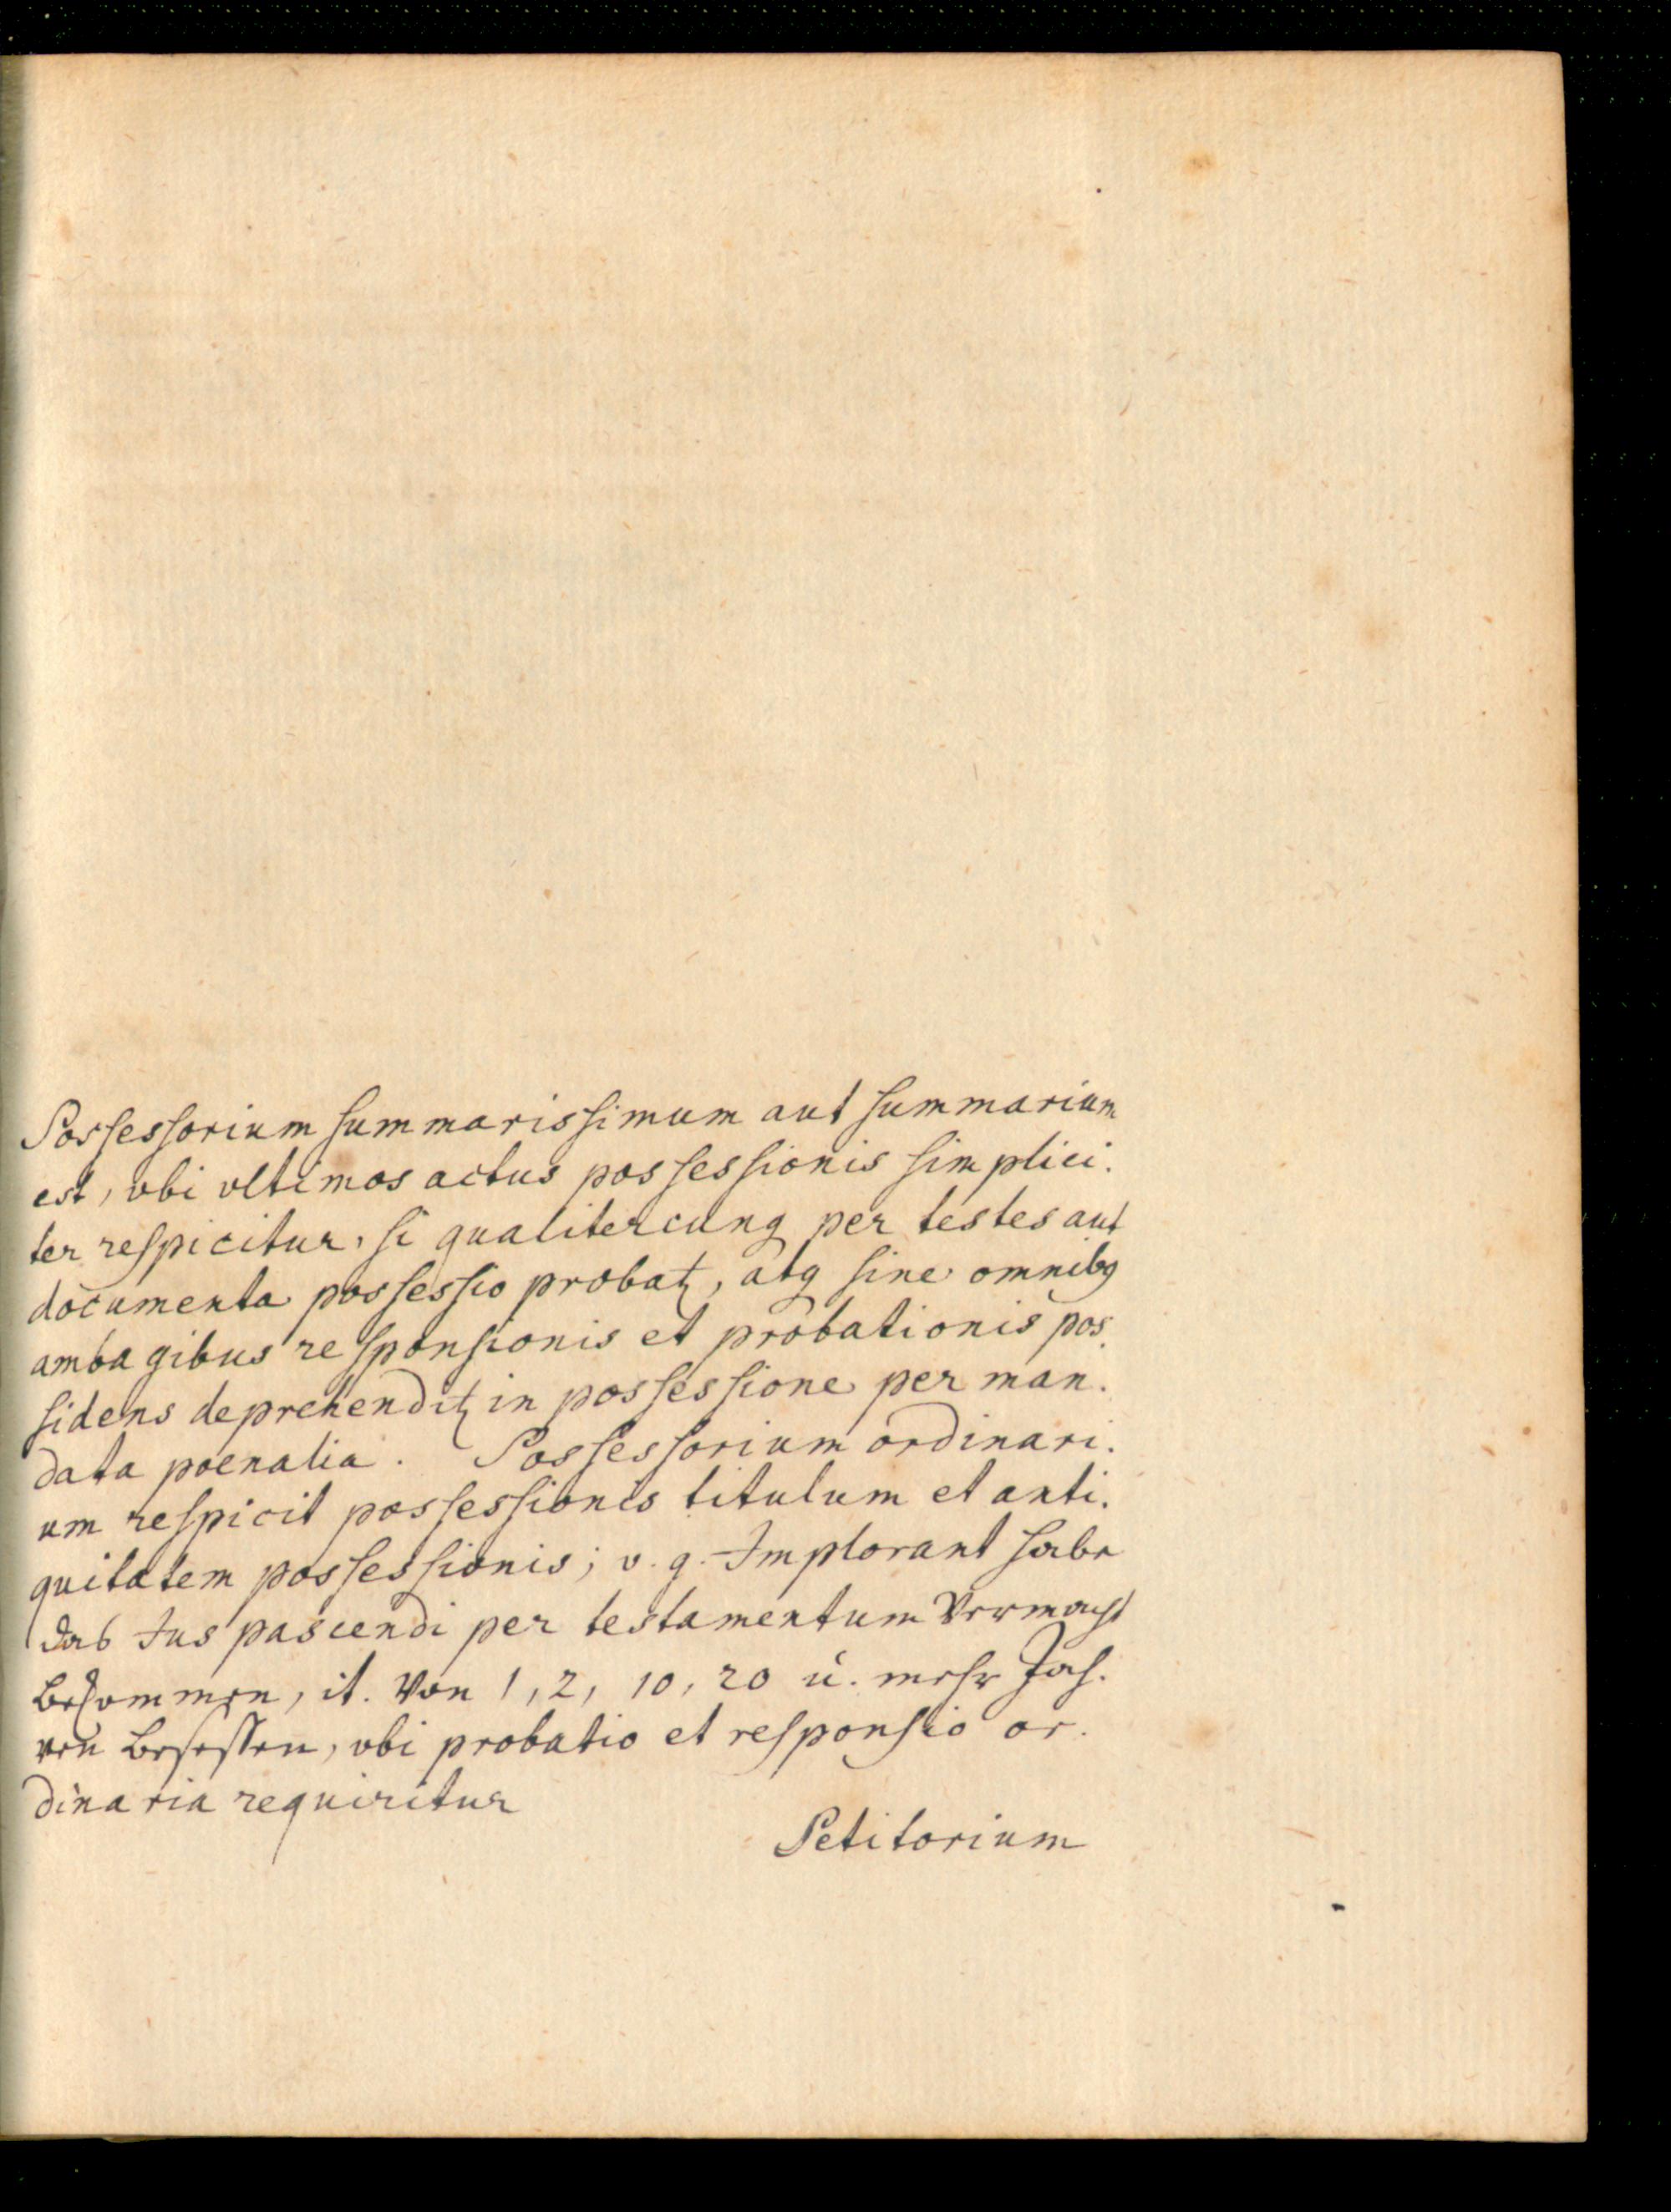 Possessorium summarissimum aut summarium
est, vbi vltimos actus possessionis simplici.
ter respicitur, si qualitercunq per testes aut
documenta possessio probat, atq sine omnibq
ambagibus responsionis et probationis pos.
sidens deprehendit in possessione per man.
data poenalia. Possessorium ordinari.
um respicit possessionis titulum et anti.
quitatem possessionis; v. g. Implorant habe
das Jus pascendi per testamentum Vermacht
bekommen, it. von 1, 2, 10, 20 ü. mehr Jah.
ren besessen, vbi probatio et responsio or.
dinaria requiritur
Petitorium